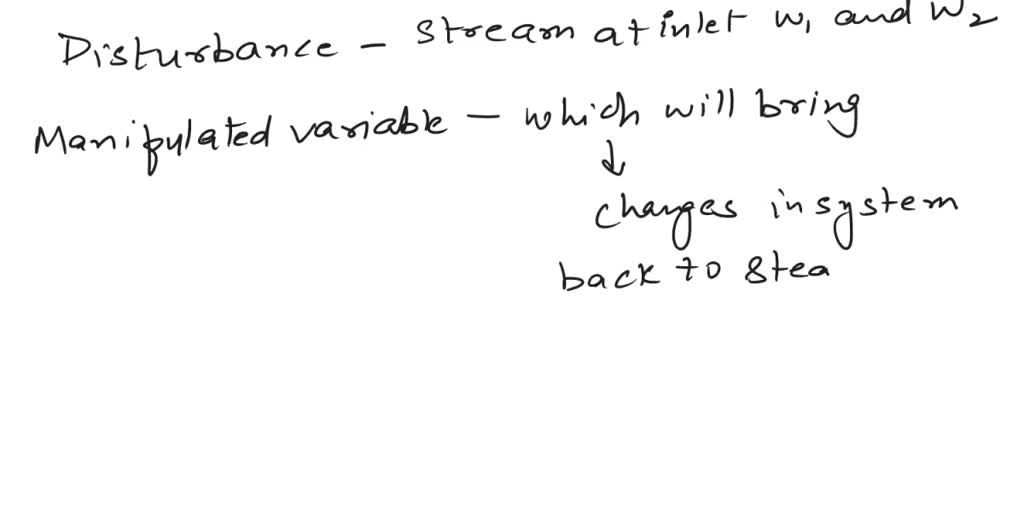 Disturbance - stream at inlet W1 and W2
Manipulated variable - which will bring
↓
changes in system
back to stea